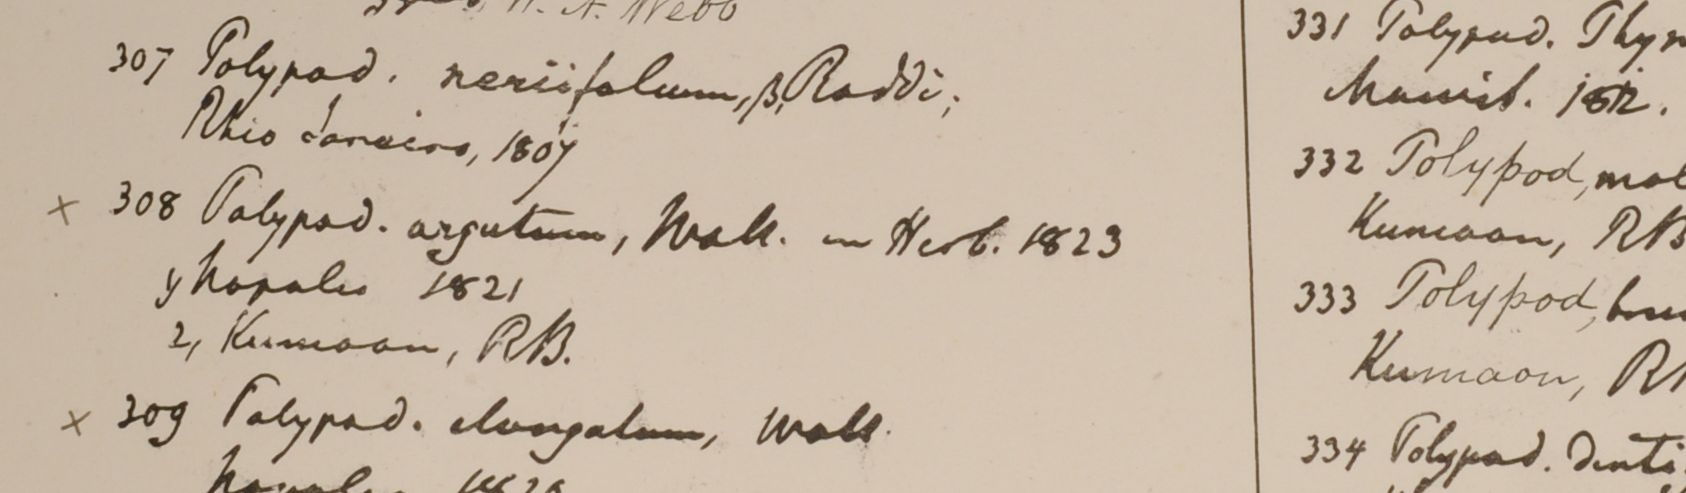 W. A. Webb
307 Polypod. neriifolium, β, Raddi;
Rhio Janeiro, 1807
x 308 Polypod. argutum, Wall. in Herb. 1823
y Napalia 1821
2, Kumaon, RB.
x 309 Polypod. elongatum, Wall.
331 Polypod.
Maurit. 1812.
332 Polypod,
Kumaon, RB
333 Polypod,
Kumaon,
334 Polypod.